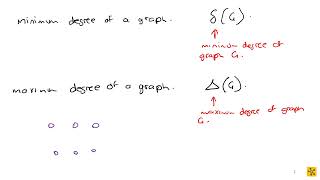 minimum degree of a graph. δ(G).
minimum degree of
graph G.
maximum degree of a graph. Δ(G).
maximum degree of graph
G.